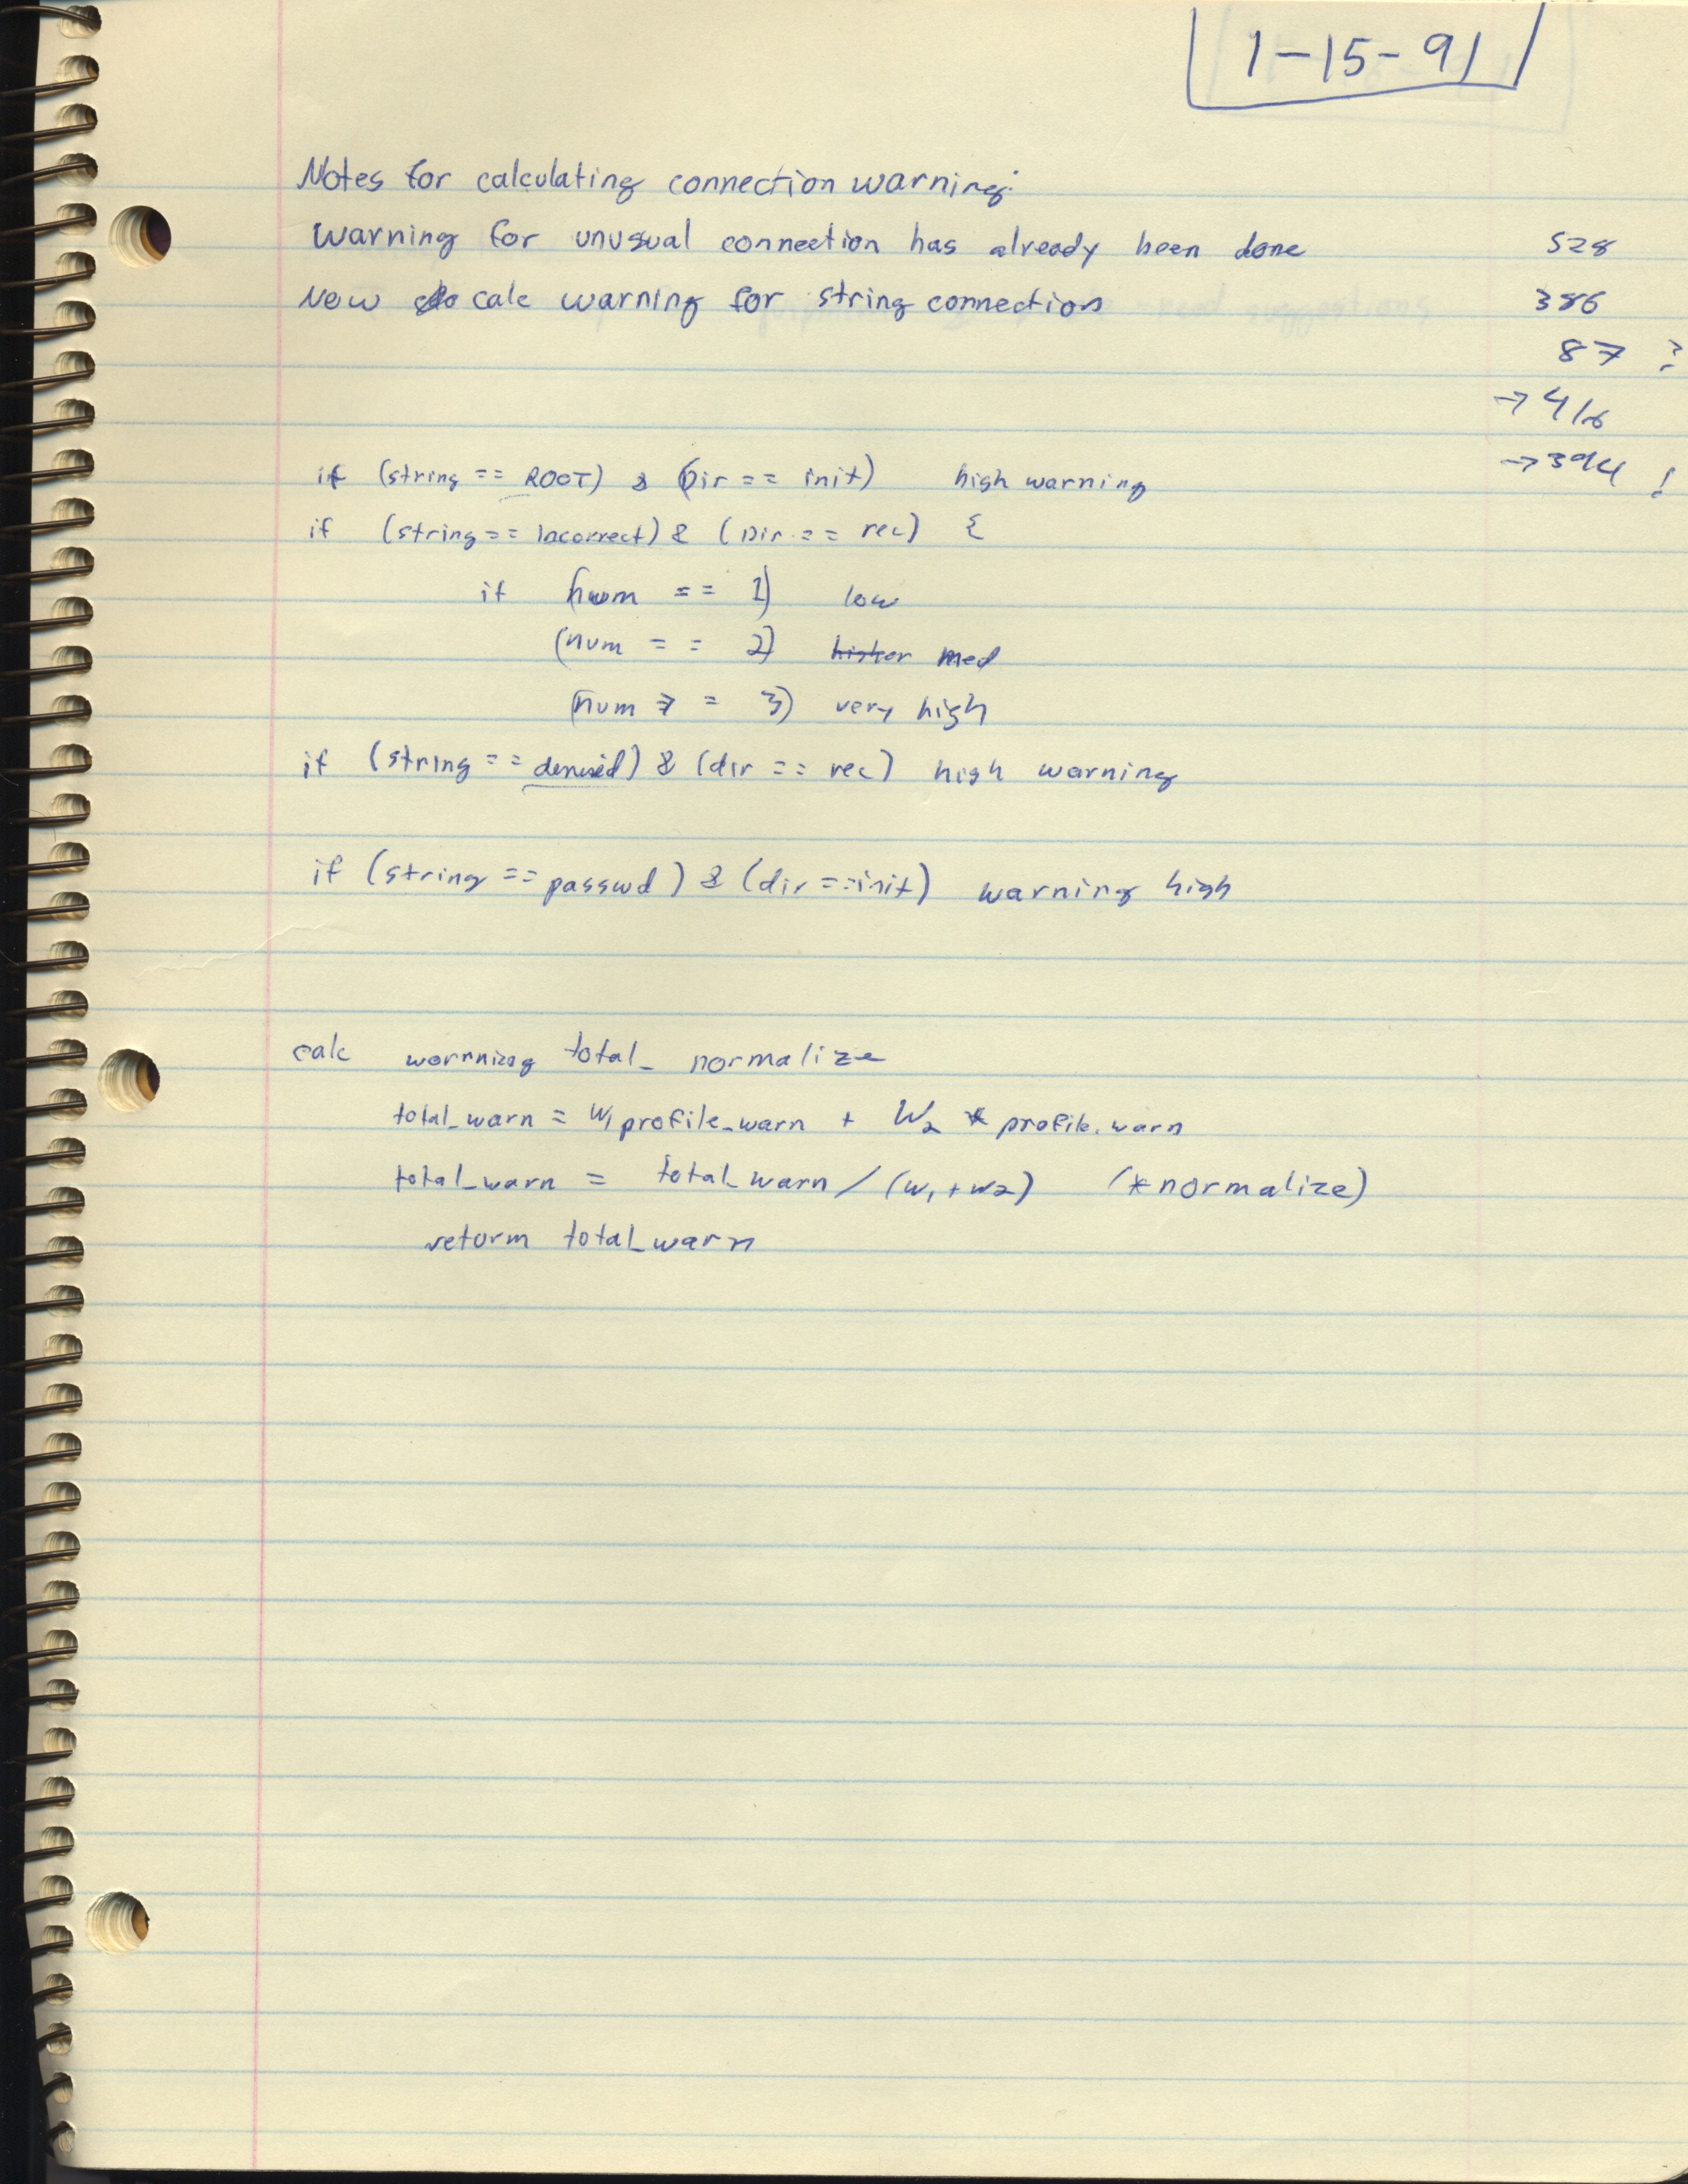 1-15-91
Notes for calculating connection warning:
Warning for unusual connection has already been done 528
Now do calc warning for string connection 386
87 ?
→ 416
→ 394 !
if (string == ROOT) & (Dir == init) high warning
if (string == Incorrect) & (Dir == rec) {
if (num == 1) low
(num == 2) higher med
(num >= 3) very high
if (string == denied) & (dir == rec) high warning
if (string == passwd) & (dir == init) warning high
calc warnning total_ normalize
total_warn = W1 profile_warn + W2 * profile_warn
total_warn = total_warn / (w1 + w2) (*normalize)
return total_warn